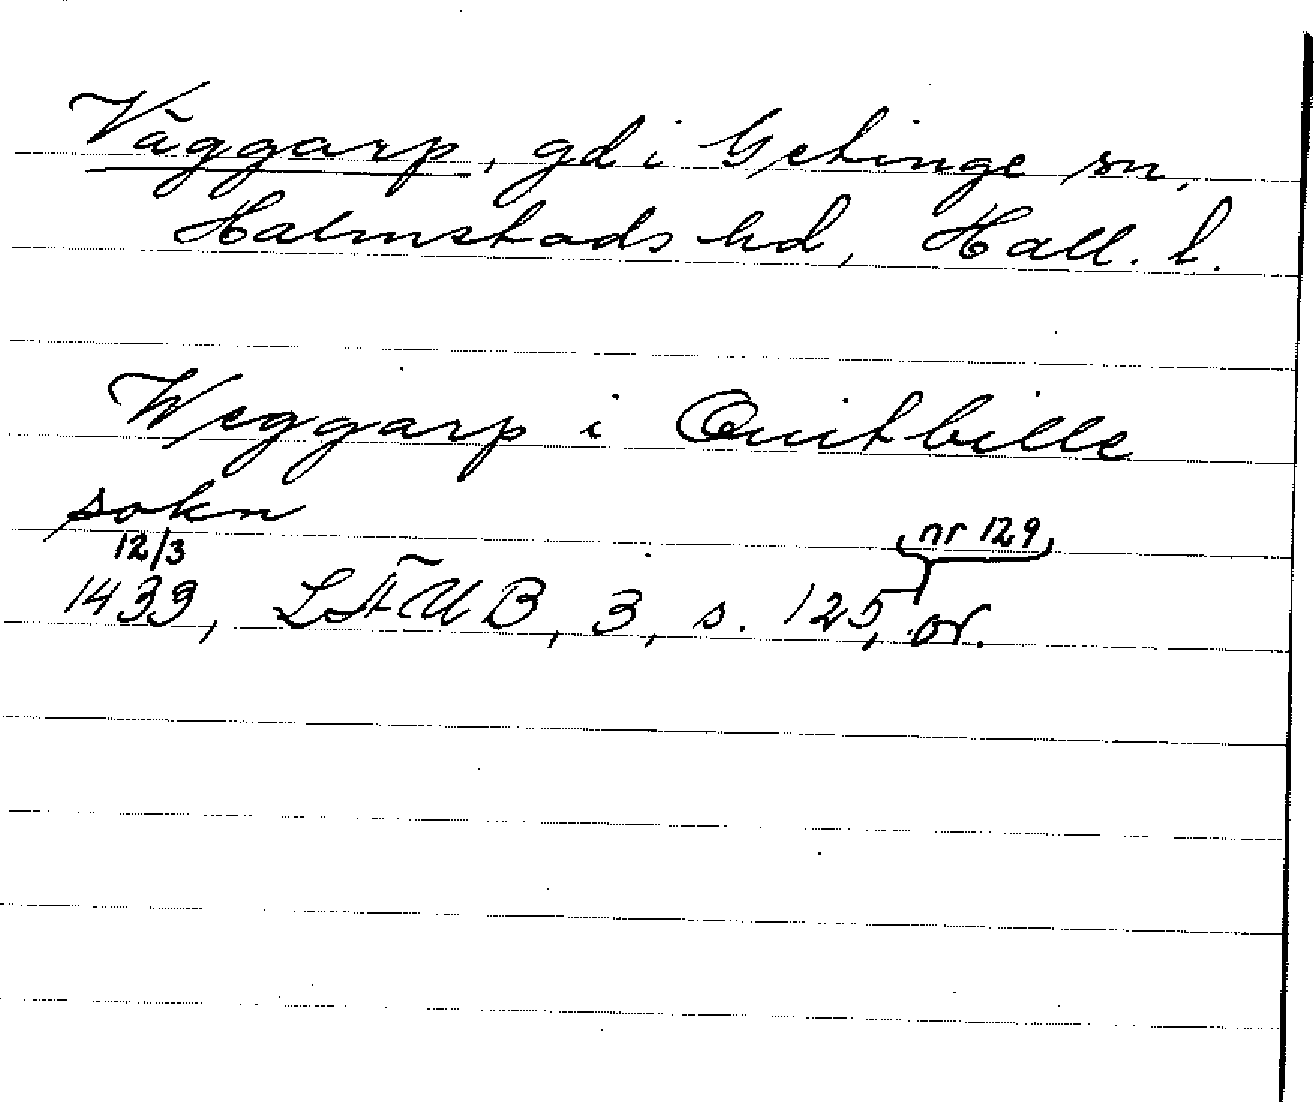 Väggarp, gd i Getinge sn,
Halmstads hd, Hall. l.
Weggarp i Quitbille
sokn
12/3 nr 129
1439, LSÄUB, 3, s. 125, or.